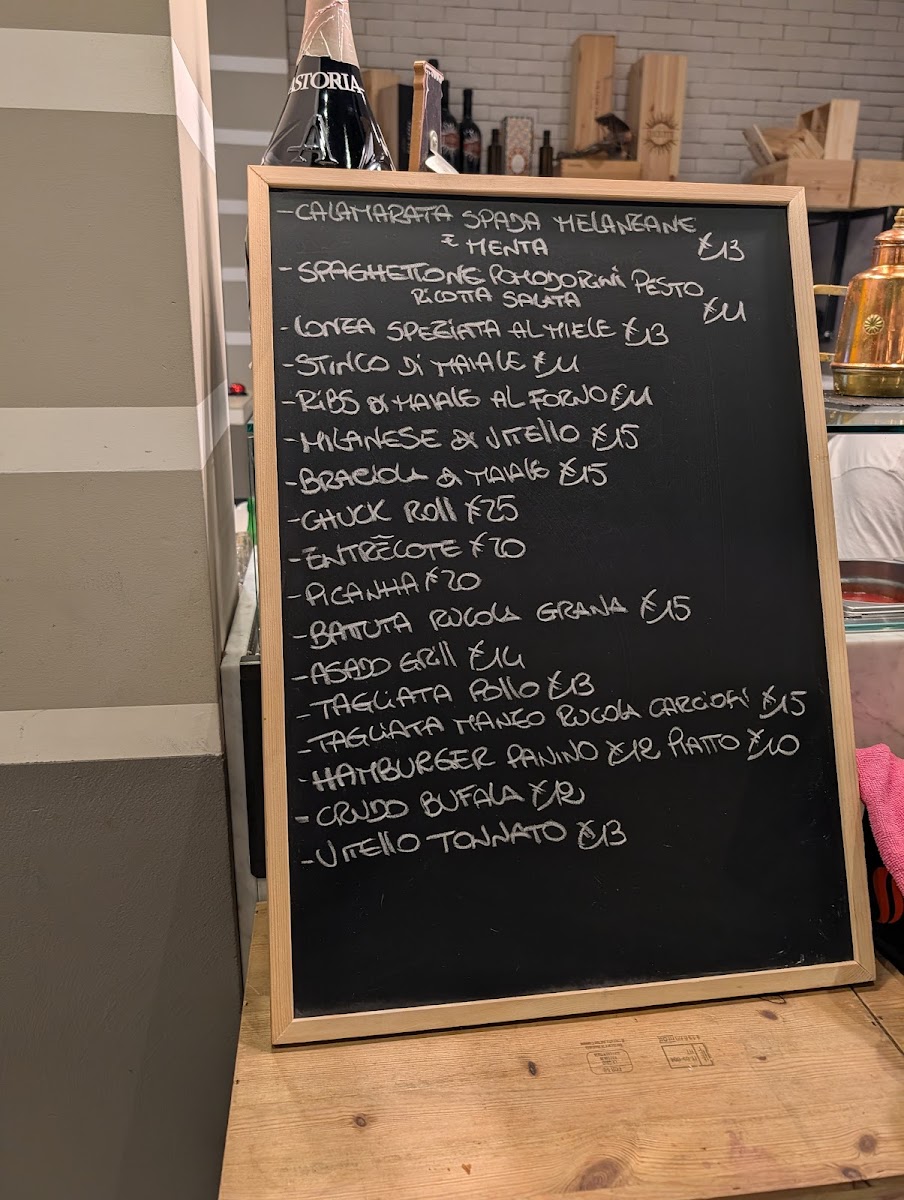 ASTORIA
A
-CALAMARATA SPADA MELANZANE
E MENTA €13
-SPAGHETTONE POMODORINI PESTO
RICOTTA SALATA €11
-LONZA SPEZIATA AL MIELE €13
-STINCO DI MAIALE €11
-RIBS DI MAIALE AL FORNO €11
-MILANESE DI VITELLO €15
-BRACIOLA DI MAIALE €15
-CHUCK ROLL €25
-ENTRECOTE €20
-PICANHA €20
-BATTUTA RUCOLA GRANA €15
-ASADO GRILL €14
-TAGLIATA POLLO €13
-TAGLIATA MANZO RUCOLA CARCIOFI €15
-HAMBURGER PANINO €12 PIATTO €10
-CRUDO BUFALA €12
-VITELLO TONNATO €13